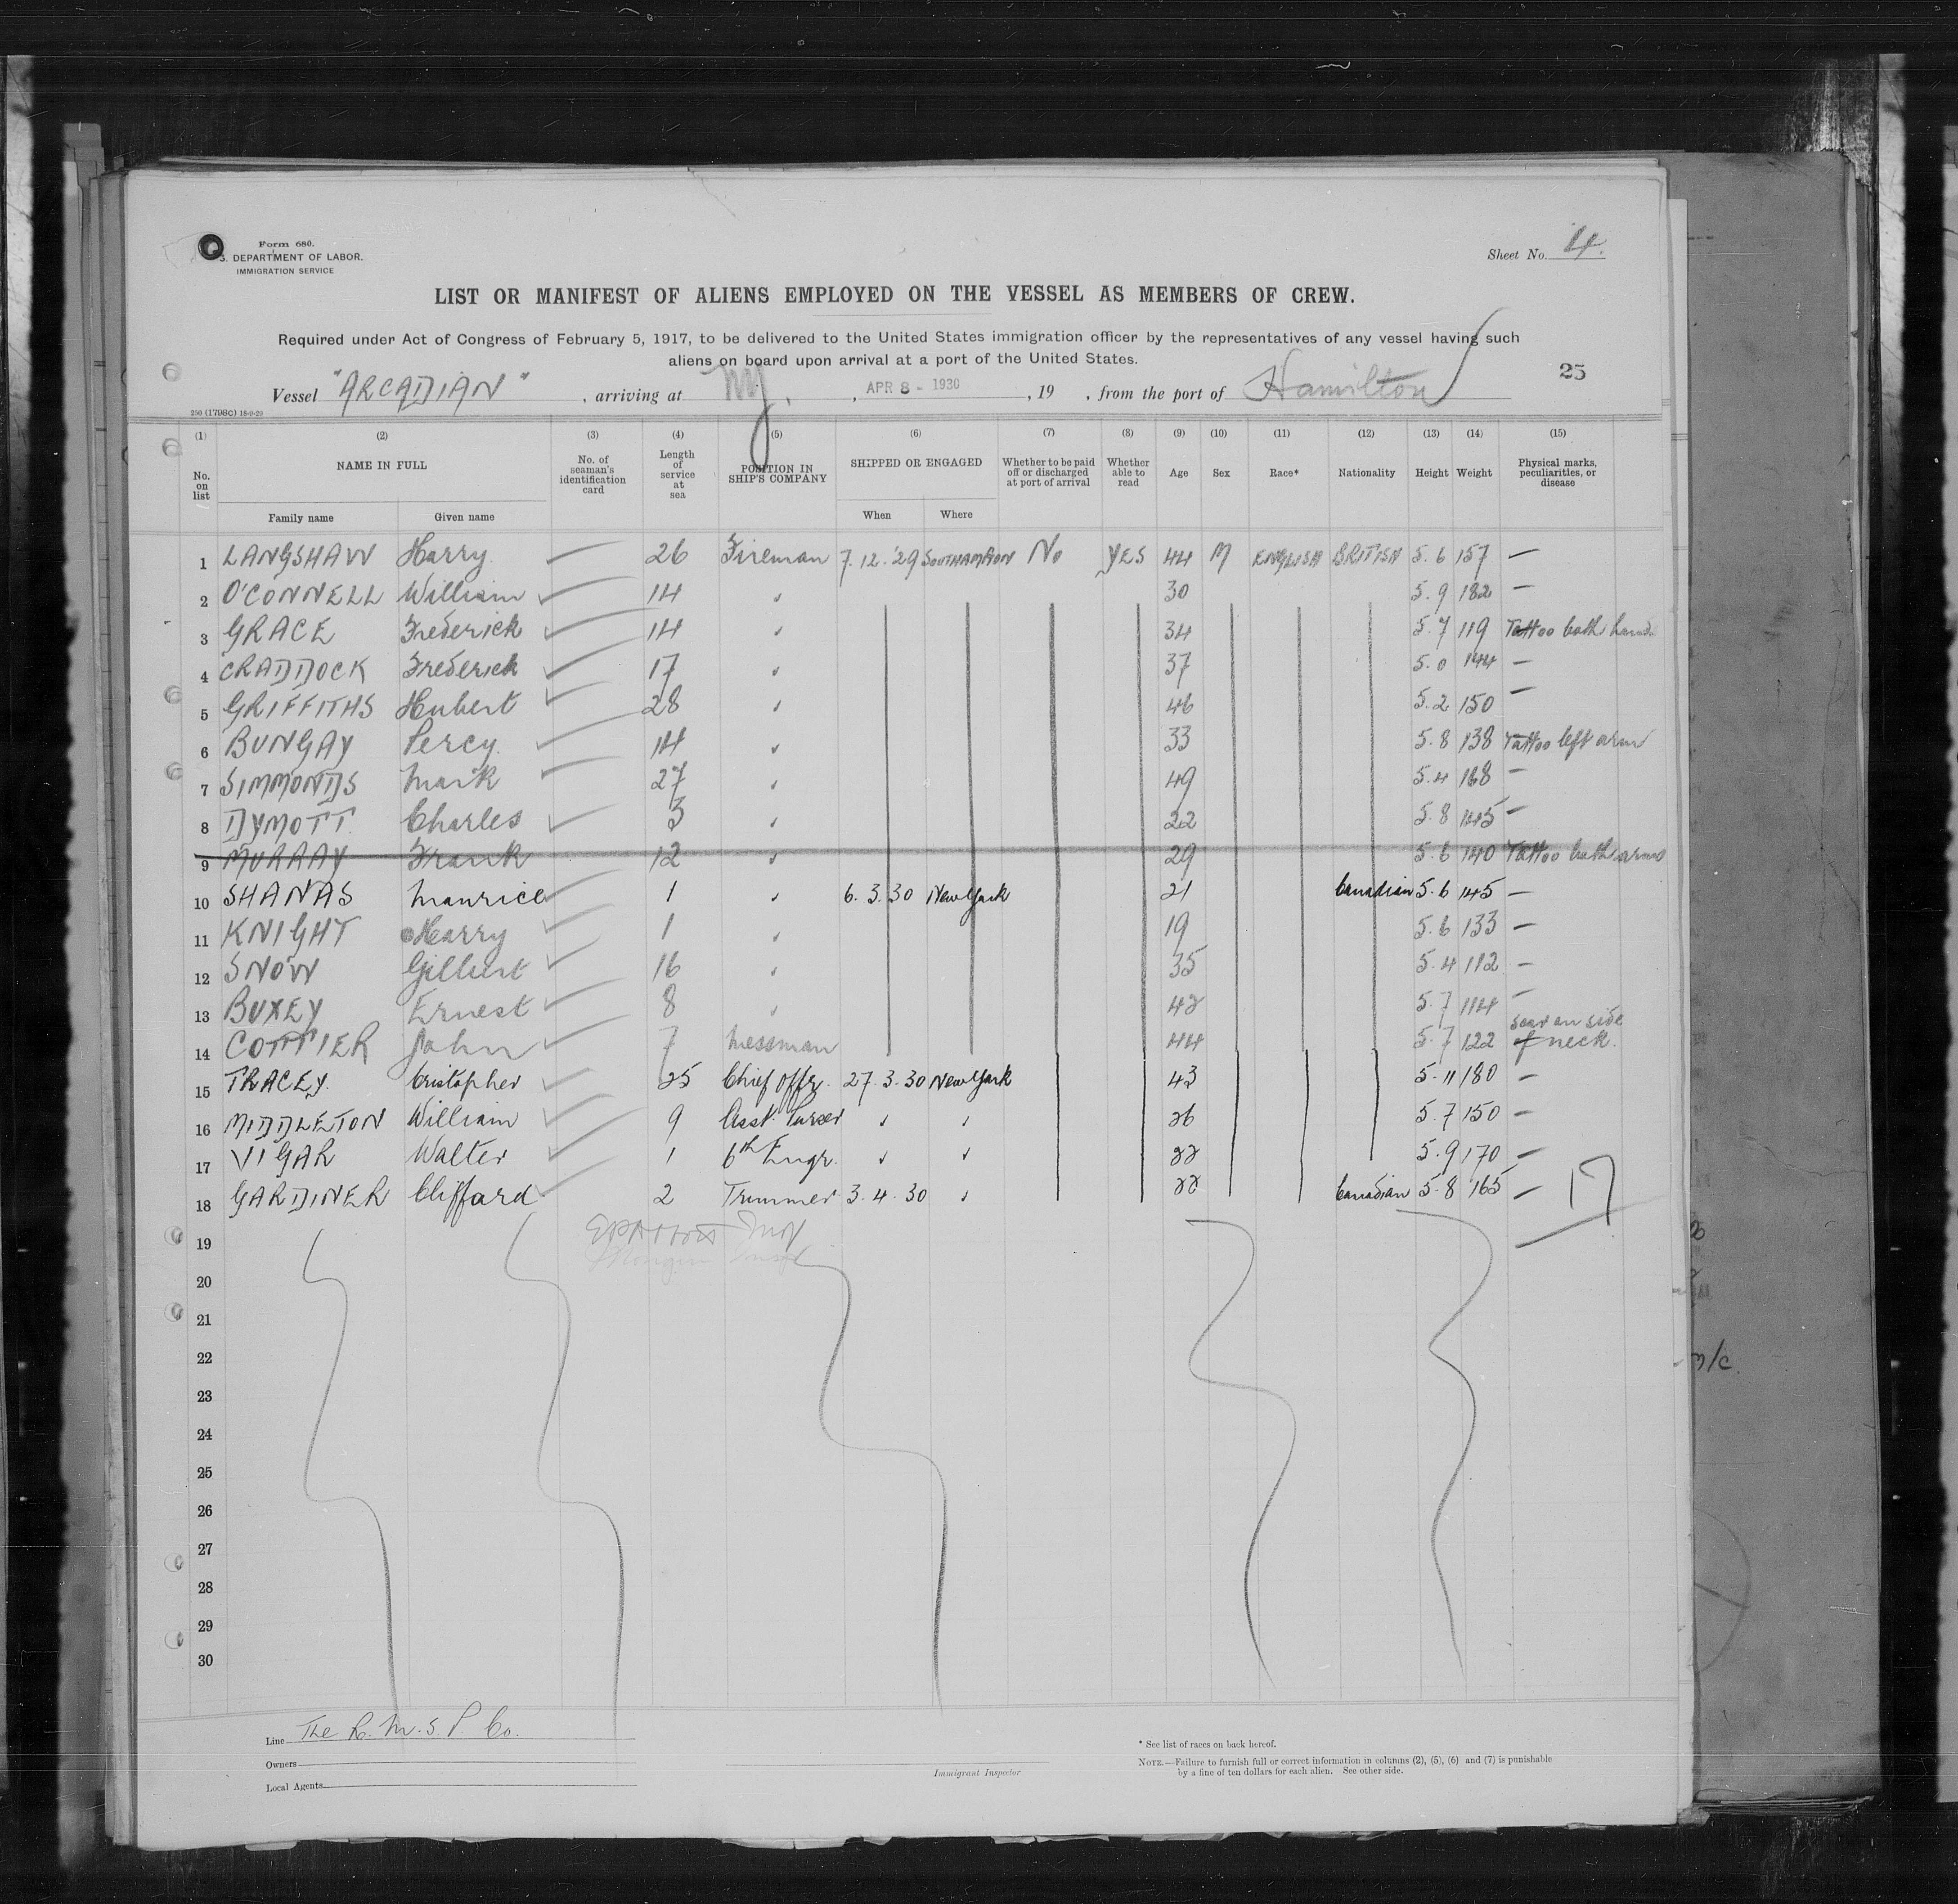 Form 680.
S. DEPARTMENT OF LABOR.
IMMIGRATION SERVICE
Sheet No. 4.
LIST OR MANIFEST OF ALIENS EMPLOYED ON THE VESSEL AS MEMBERS OF CREW.
Required under Act of Congress of February 5, 1917, to be delivered to the United States immigration officer by the representatives of any vessel having such
aliens on board upon arrival at a port of the United States.
25
Vessel "ARCADIAN", arriving at NY., APR 8 - 1930, 19 , from the port of Hamilton
250 (1798C) 18-9-29
(1) (2) (3) (4) (5) (6) (7) (8) (9) (10) (11) (12) (13) (14) (15)
No. on list NAME IN FULL No. of seaman's identification card Length of service at sea POSITION IN SHIP'S COMPANY SHIPPED OR ENGAGED Whether to be paid off or discharged at port of arrival Whether able to read Age Sex Race* Nationality Height Weight Physical marks, peculiarities, or disease
Family name Given name When Where
1 LANGSHAW Harry — 26 Fireman 7.12.'29 SOUTHAMPTON No YES 44 M ENGLISH BRITISH 5.6 157 —
2 O'CONNELL William ✓ 14 ✓ 30 5.9 182 —
3 GRACE Frederick ✓ 14 ✓ 34 5.7 119 Tattoo both hands
4 CRADDOCK Frederick ✓ 17 ✓ 37 5.0 144 —
5 GRIFFITHS Hubert ✓ 28 ✓ 46 5.2 150 —
6 BUNGAY Percy. ✓ 14 ✓ 33 5.8 138 Tattoo left arm
7 SIMMONDS Mark ✓ 27 ✓ 49 5.4 168 —
8 DYMOTT. Charles ✓ 3 ✓ 22 5.8 145 —
9 MURRAY Frank 12 ✓ 29 5.6 140 Tattoo both arms
10 SHANAS Maurice ✓ 1 ✓ 6.3.30 New York 21 Canadian 5.6 145 —
11 KNIGHT Harry ✓ 1 ✓ 19 5.6 133 —
12 SNOW Gilbert ✓ 16 ✓ 35 5.4 112 —
13 BUXEY Ernest ✓ 8 ✓ 42 5.7 114 —
14 COTTIER John ✓ 7 Messman 44 5.7 122 scar on side of neck.
15 TRACEY. Cristopher ✓ 25 Chief Offr. 27.3.30 New York 43 5.11 180 —
16 MIDDLETON William ✓ 9 Asst. Purser ✓ ✓ 26 5.7 150 —
17 VIGAR Walter ✓ 1 6th Engr. ✓ ✓ 22 5.9 170 —
18 GARDINER Clifford ✓ 2 Trimmer 3.4.30 ✓ 22 Canadian 5.8 165 —
17
19
20
21
22
23
24
25
26
27
28
29
30
m/c.
Line The R.M.S.P. Co.
Owners
Local Agents
Immigrant Inspector
* See list of races on back hereof.
NOTE.—Failure to furnish full or correct information in columns (2), (5), (6) and (7) is punishable
by a fine of ten dollars for each alien. See other side.